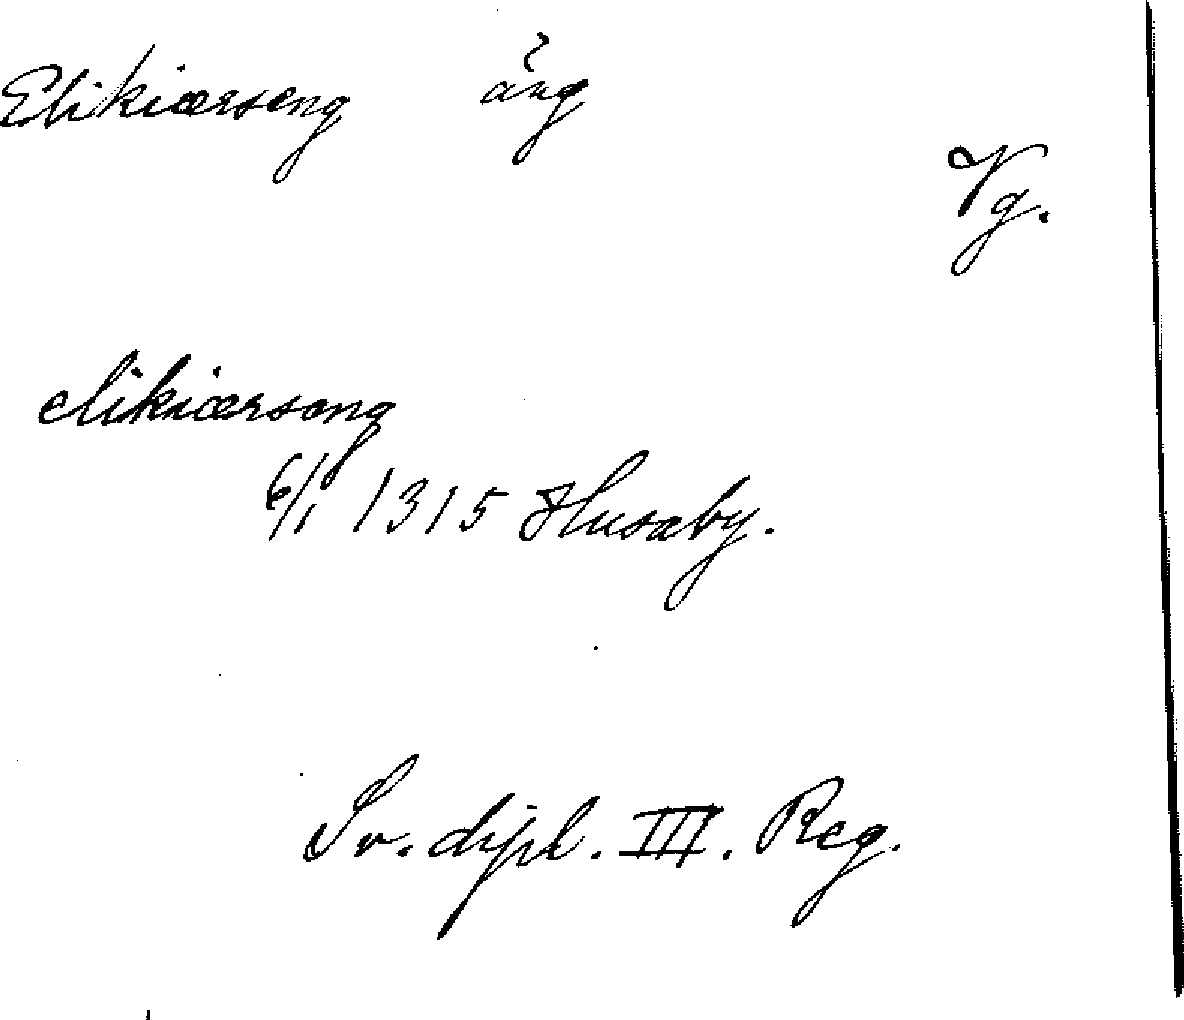 Elikiærseng äng
Vg.
elikiærseng
6/1 1315 Husaby.
Sv. dipl. III. Reg.